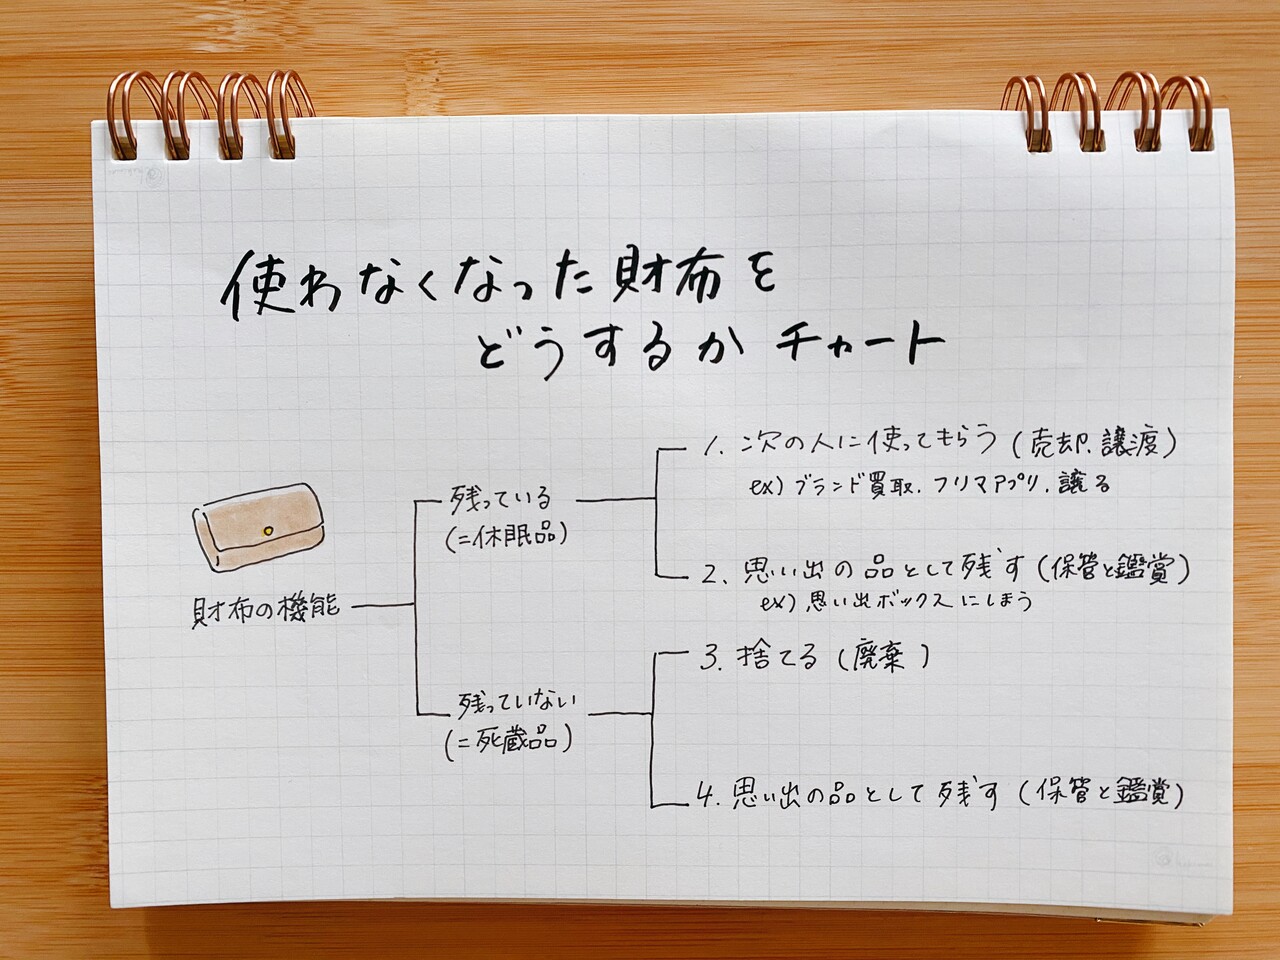 使わなくなった財布を
どうするかチャート
財布の機能
残っている
(=休眠品)
1. 次の人に使ってもらう(売却.譲渡)
ex) ブランド買取. フリマアプリ. 譲る
2. 思い出の品として残す(保管と鑑賞)
ex) 思い出ボックスにしまう
残っていない
(=死蔵品)
3. 捨てる(廃棄)
4. 思い出の品として残す(保管と鑑賞)